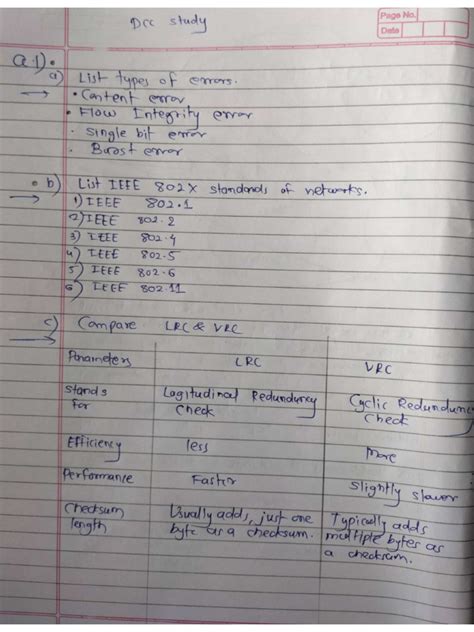 Page No.
Date
Dcc study
Q.1).
a) List types of errors.
→ • Content error
• Flow Integrity error
• single bit error
• Burst error
• b) List IEEE 802X standards of networks.
→ 1) IEEE 802.1
2) IEEE 802.2
3) IEEE 802.4
4) IEEE 802.5
5) IEEE 802.6
6) IEEE 802.11
c) Compare LRC & VRC
→
Parameters LRC VRC
Stands for Logitudinal Redundancy Check Cyclic Redundancy Check
Efficiency less More
Performance Faster slightly slower
Checksum length Usually adds, just one byte as a checksum. Typically adds multiple bytes as a checksum.